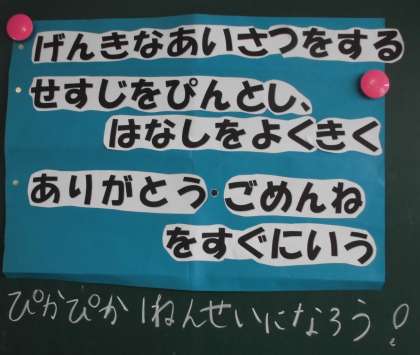 げんきなあいさつをする
せすじをぴんとし、
はなしをよくきく
ありがとう・ごめんね
をすぐにいう
ぴかぴか1ねんせいになろう！